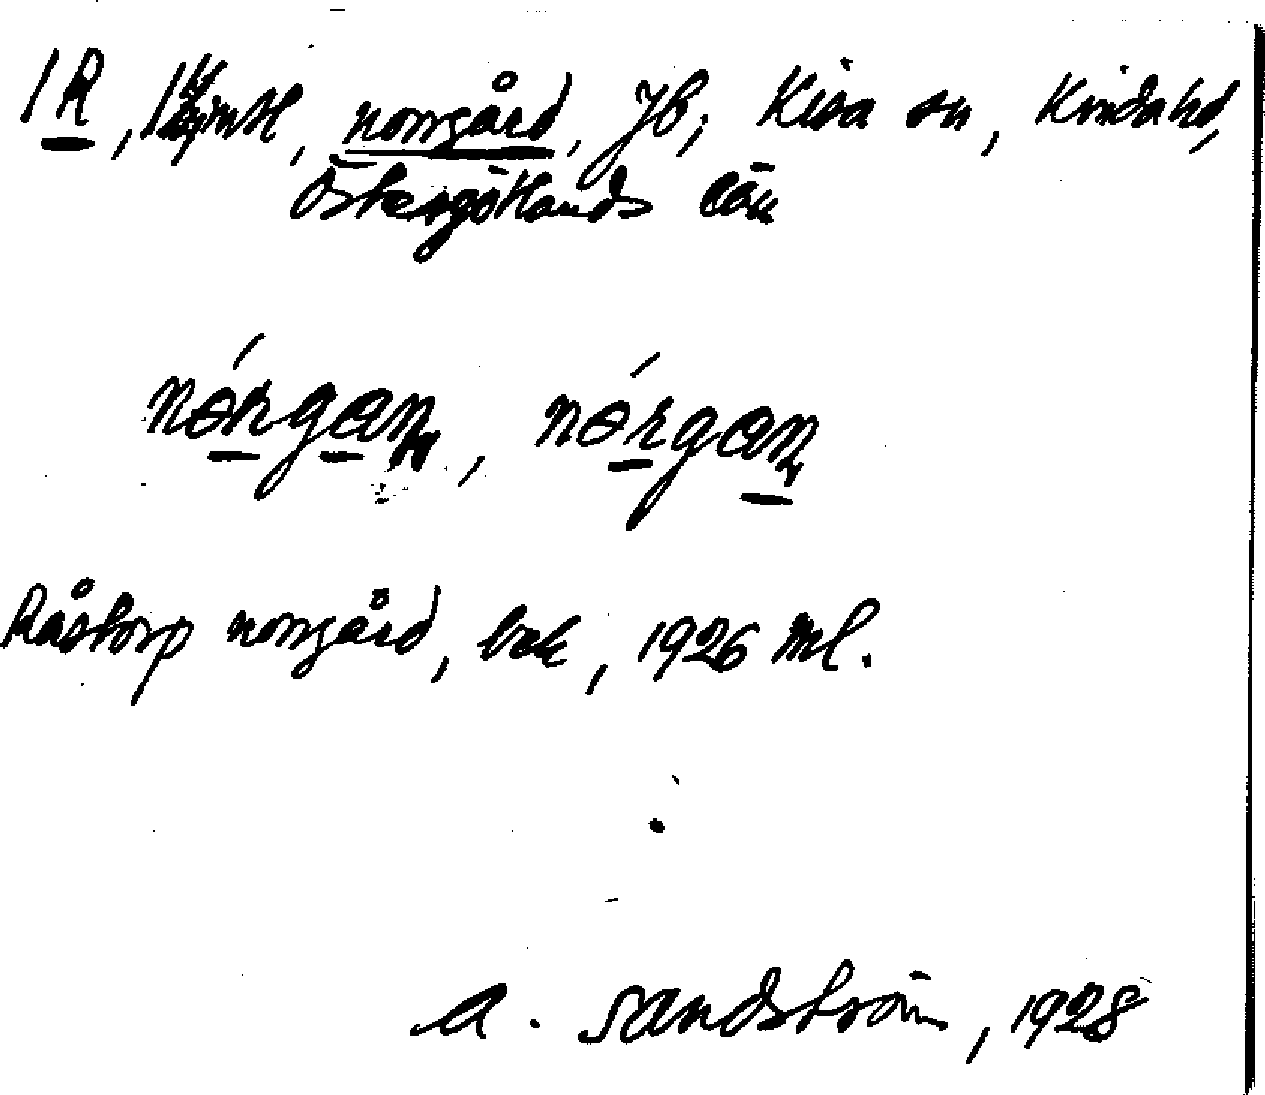 1 R, norrgård, JB; Kisa sn, Kinda hd,
Östergötlands län
nórgan, nórgan
Råstorp norrgård, bok, 1926 ml.
A. Sandström, 1928